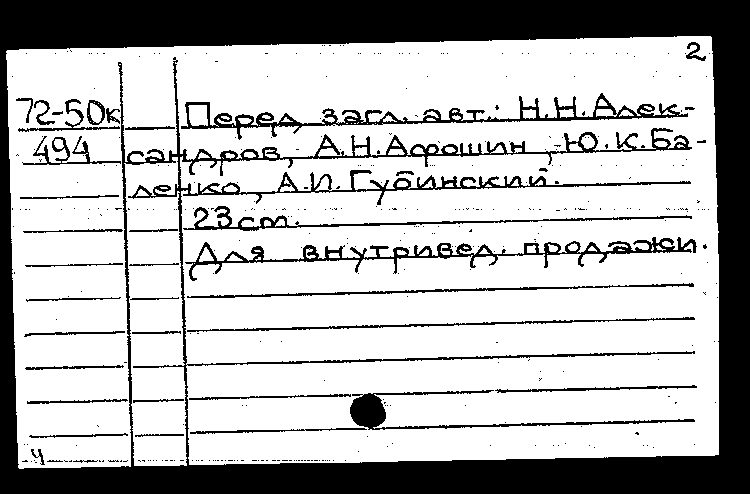 2
72-50к Перед загл. авт.: Н.Н.Алек-
494 сандров, А.Н.Афошин, Ю.К.Ба-
ленко, А.И.Губинский.
23 cm.
Для внутривед. продажи.
ч